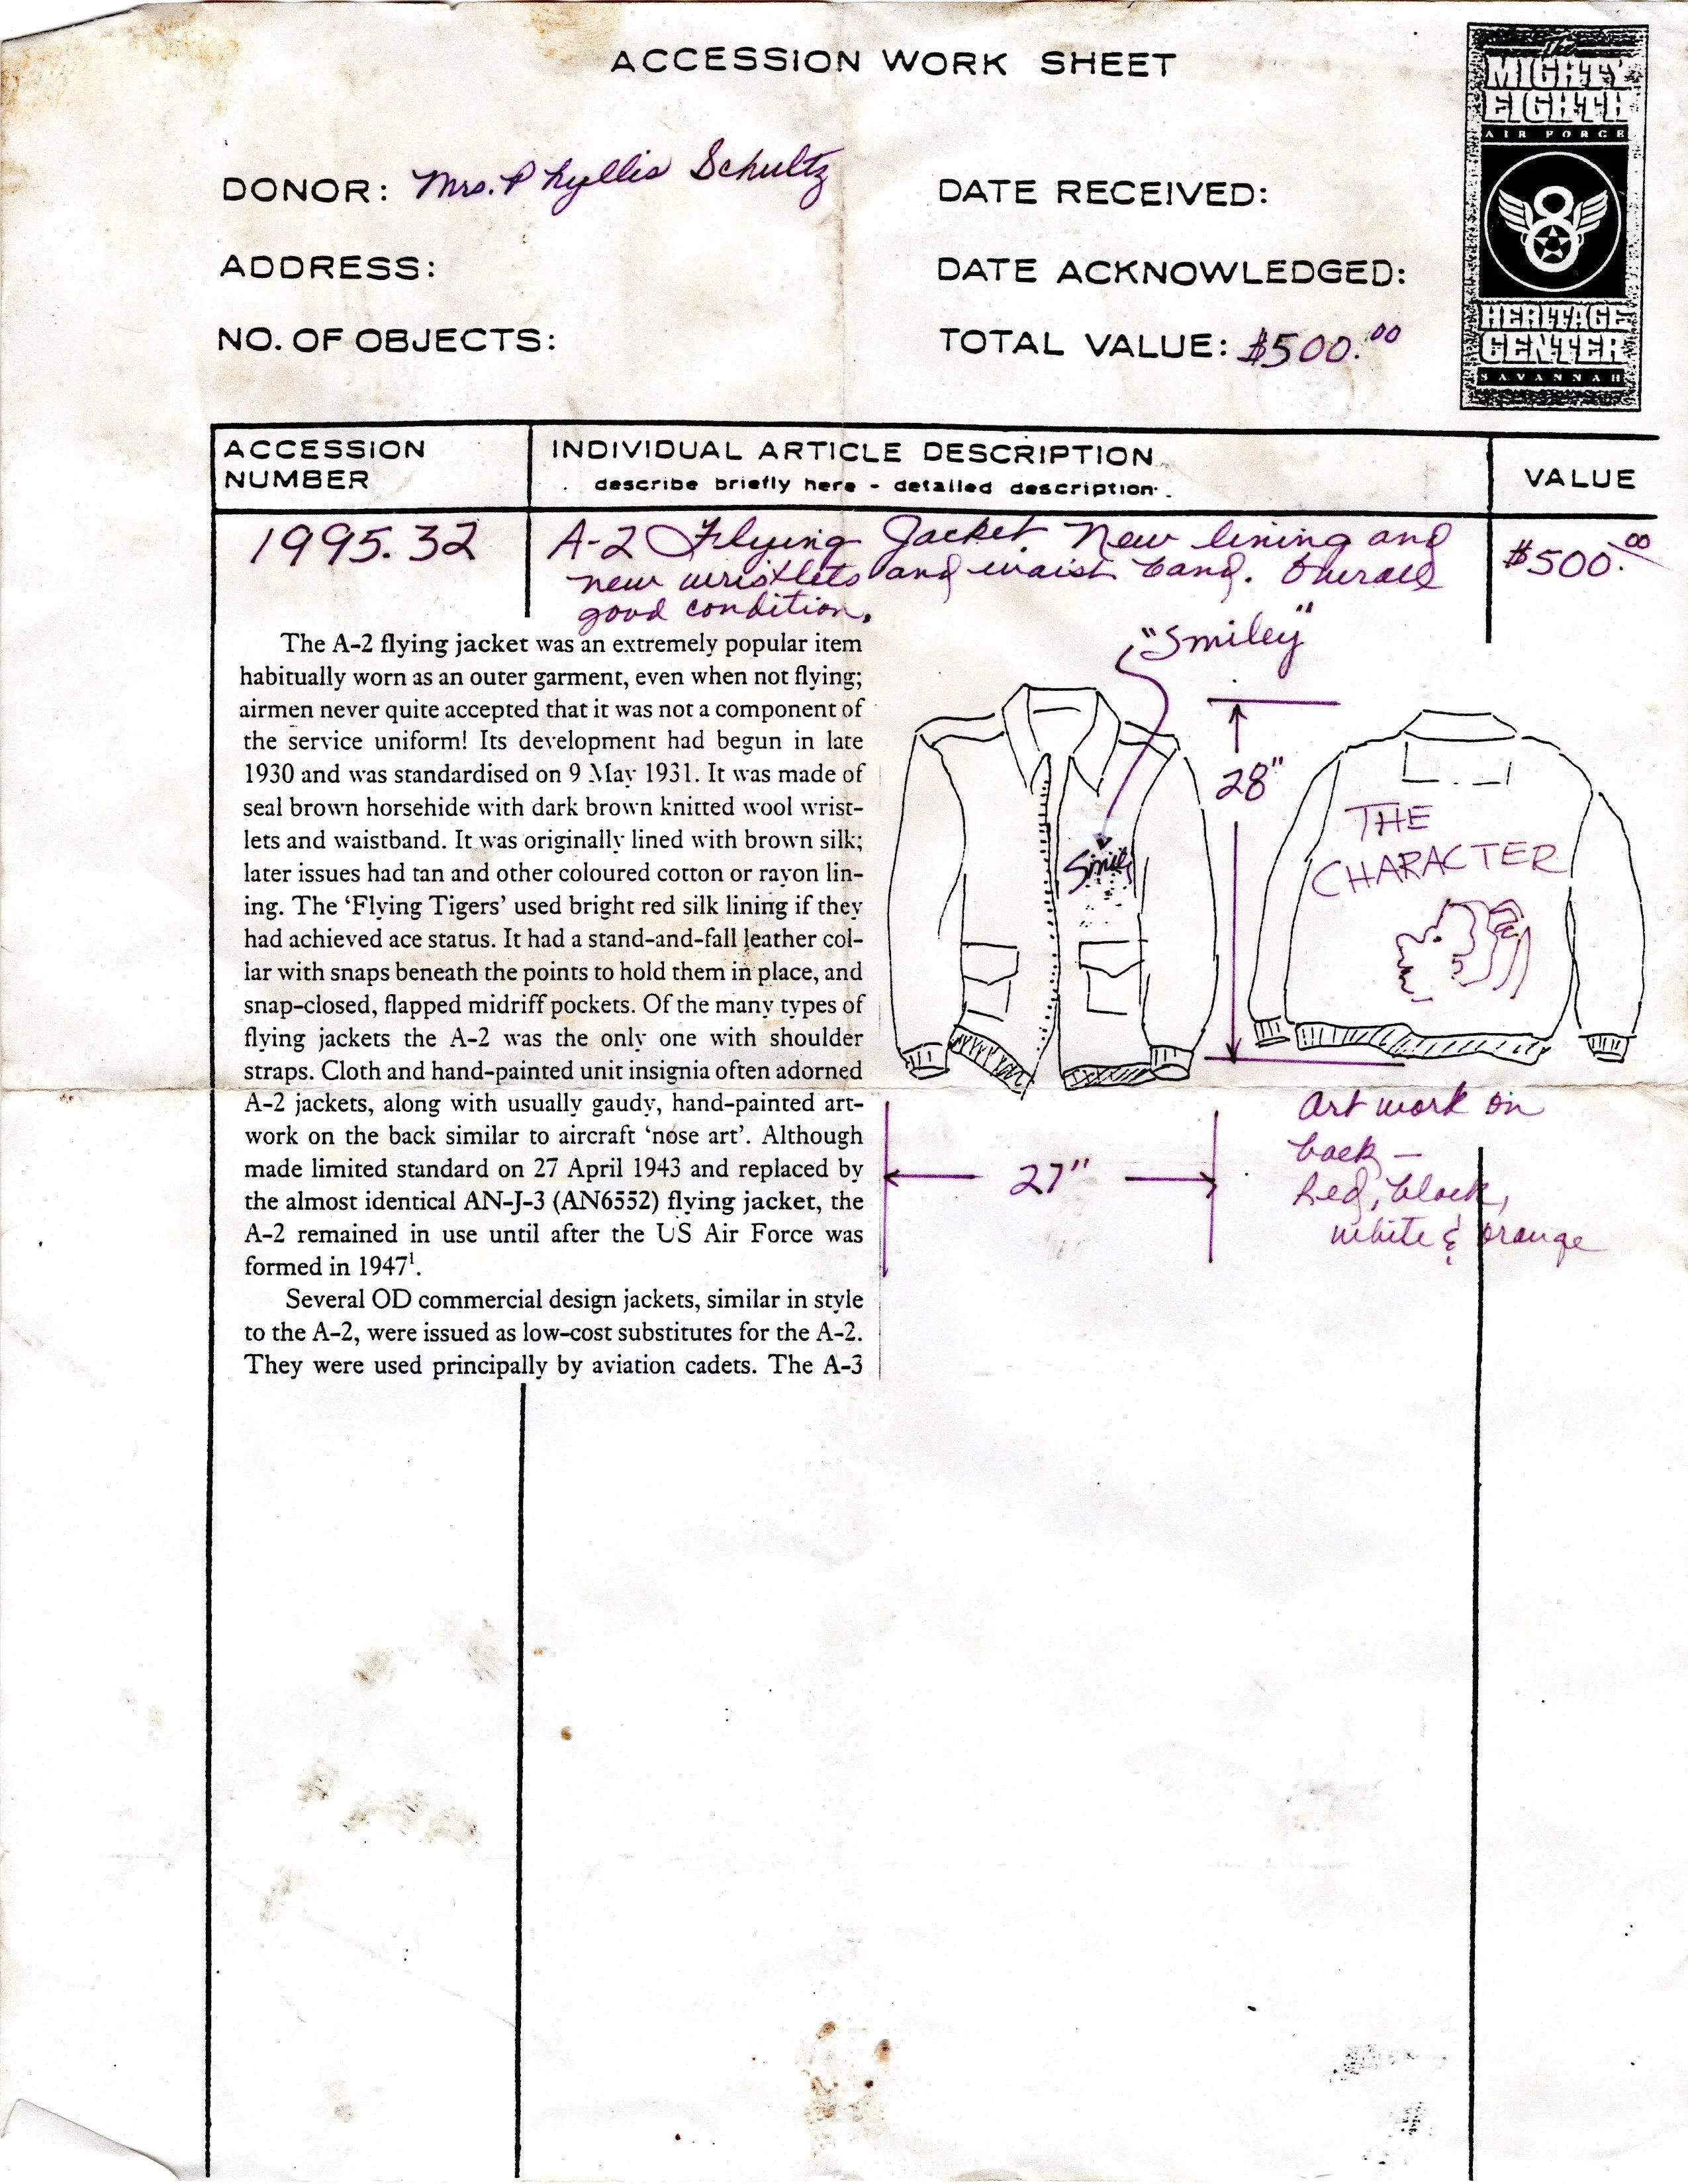 ACCESSION WORK SHEET
the
MIGHTY
EIGHTH
AIR FORCE
8
HERITAGE
CENTER
SAVANNAH
DONOR: Mrs. Phyllis Schultz
DATE RECEIVED:
ADDRESS:
DATE ACKNOWLEDGED:
NO. OF OBJECTS:
TOTAL VALUE: $500.00
ACCESSION
NUMBER
INDIVIDUAL ARTICLE DESCRIPTION
describe briefly here - detailed description
VALUE
1995.32
A-2 Flying Jacket New lining and
new wristlets and waist band. Overall
good condition.
$500.00
The A-2 flying jacket was an extremely popular item
habitually worn as an outer garment, even when not flying;
airmen never quite accepted that it was not a component of
the service uniform! Its development had begun in late
1930 and was standardised on 9 May 1931. It was made of
seal brown horsehide with dark brown knitted wool wrist-
lets and waistband. It was originally lined with brown silk;
later issues had tan and other coloured cotton or rayon lin-
ing. The ‘Flying Tigers’ used bright red silk lining if they
had achieved ace status. It had a stand-and-fall leather col-
lar with snaps beneath the points to hold them in place, and
snap-closed, flapped midriff pockets. Of the many types of
flying jackets the A-2 was the only one with shoulder
straps. Cloth and hand-painted unit insignia often adorned
A-2 jackets, along with usually gaudy, hand-painted art-
work on the back similar to aircraft ‘nose art’. Although
made limited standard on 27 April 1943 and replaced by
the almost identical AN-J-3 (AN6552) flying jacket, the
A-2 remained in use until after the US Air Force was
formed in 1947¹.
Several OD commercial design jackets, similar in style
to the A-2, were issued as low-cost substitutes for the A-2.
They were used principally by aviation cadets. The A-3
"Smiley"
28"
THE
CHARACTER
27"
Art work on
back –
Red, black,
white & orange